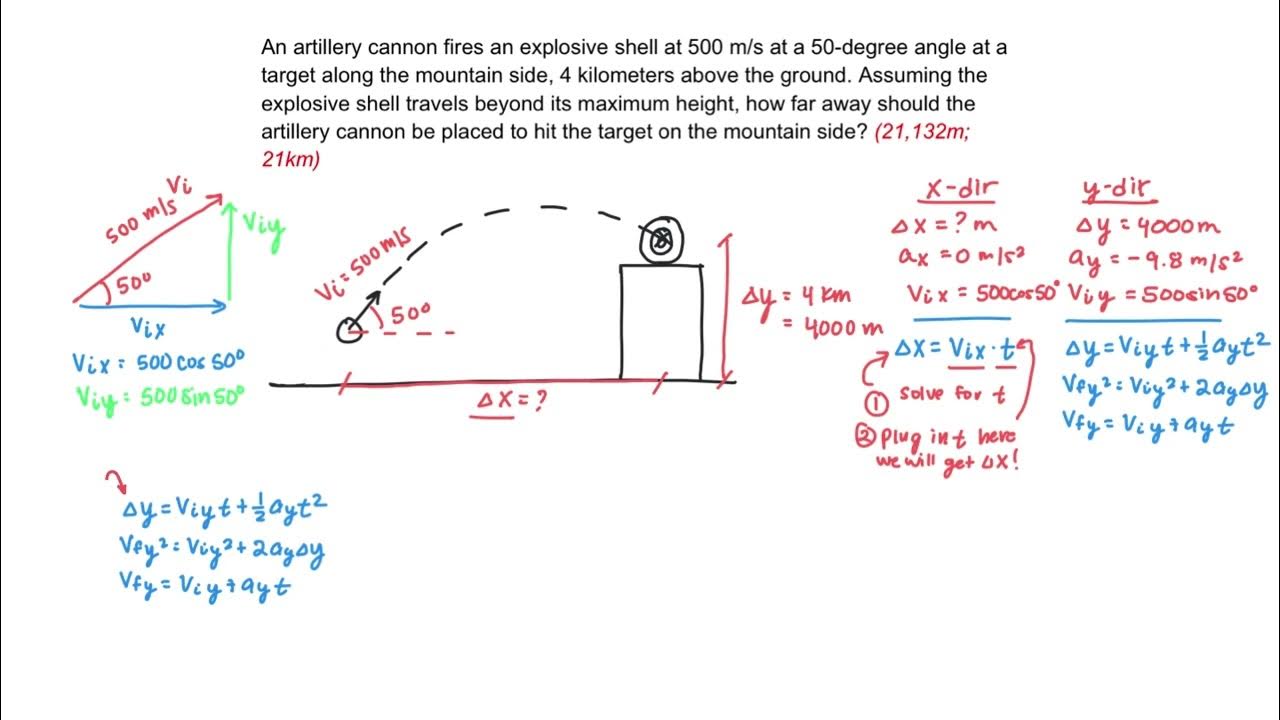 An artillery cannon fires an explosive shell at 500 m/s at a 50-degree angle at a
target along the mountain side, 4 kilometers above the ground. Assuming the
explosive shell travels beyond its maximum height, how far away should the
artillery cannon be placed to hit the target on the mountain side? (21,132m;
21km)
Vi
500 m/s
Viy
50°
Vix
Vix = 500 cos 50°
Viy = 500 sin 50°
Vi = 500 m/s
50°
Δy = 4 km
= 4000 m
Δx = ?
x-dir
Δx = ? m
ax = 0 m/s²
Vix = 500cos50°
Δx = Vix · t
① solve for t
② Plug in t here
we will get Δx!
y-dir
Δy = 4000m
ay = -9.8 m/s²
Viy = 500sin50°
Δy = Viyt + ½ayt²
Vfy² = Viy² + 2ayΔy
Vfy = Viy + ayt
Δy = Viyt + ½ayt²
Vfy² = Viy² + 2ayΔy
Vfy = Viy + ayt